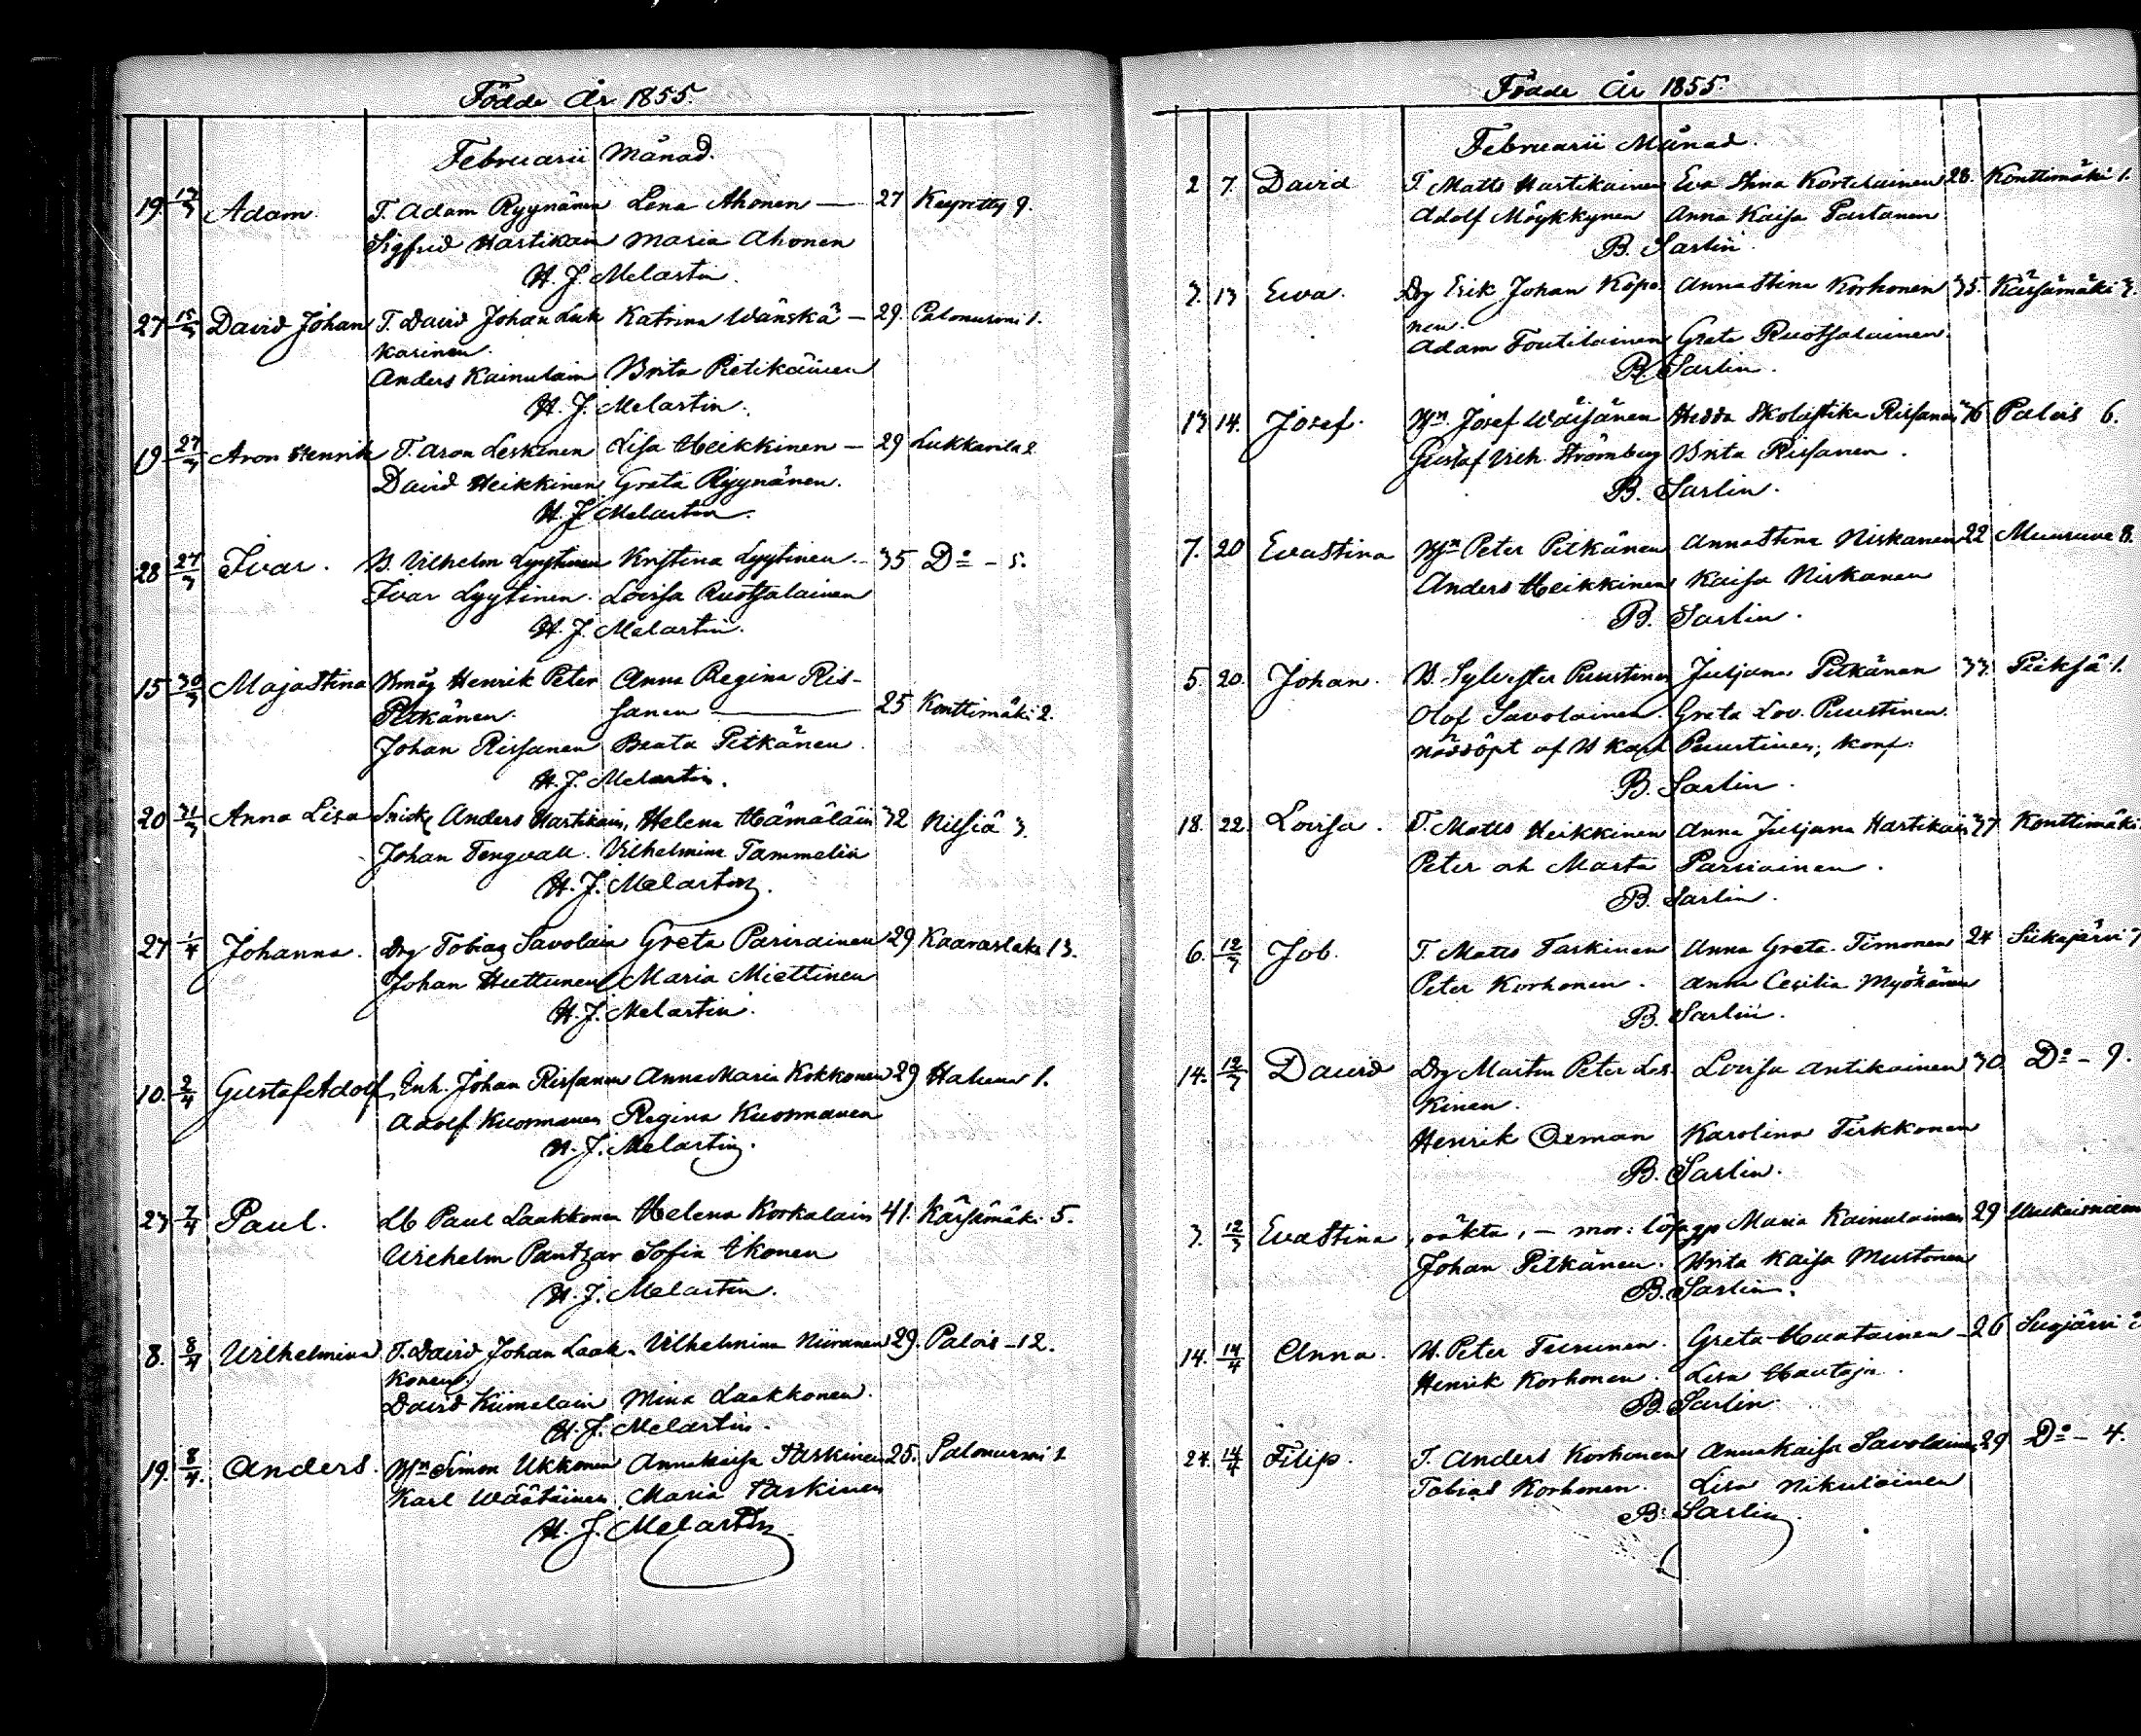 Födde År 1855.
Februarii Månad.
19. 17/3 Adam. T. Adam Ryynänen Lena Ahonen — 27 Keyritty 9.
Sigfrid Hartikain Maria Ahonen
H. J. Melartin.
27 18/3 David Johan T. David Johan Luk Katrina Wänskä — 29. Palonurmi 1.
karinen.
Anders Kainulain Brita Pietikäinen
H. J. Melartin.
19 27/3 Aron Henrik T. Aron Leskinen Lisa Heikkinen — 29 Lukkarila 2
David Heikkinen Greta Ryynänen.
H. J. Melartin.
28 27/3 Ivar. B. Vilhelm Lyytinen Kristina Lyytinen. - 35 Do - 5.
Ivar Lyytinen. Lovisa Ruotsalainen
H. J. Melartin.
15 30/3 Majastina Bmåg Henrik Peter Anna Regina Ris-
Pitkänen. sanen — 25 Konttimäki 2.
Johan Rissanen Beata Pitkänen.
H. J. Melartin.
20 31/3 Anna Lisa Snick Anders Hartikain, Helena Hämäläin 32 Nilsiä 3.
Johan Tengvall. Vilhelmina Tammelin
H. J. Melartin.
27 1/4 Johanna. Drg Tobias Savolain Greta Parviainen 29 Kaaraslaks 13.
Johan Huttunen Maria Miettinen
H. J. Melartin.
10. 2/4 Gustaf Adolf, Inh. Johan Rissanen Anna Maria Kokkonen 29 Haluna 1.
Adolf Kuosmanen Regina Kuosmanen
H. J. Melartin.
23 7/4 Paul. Lb Paul Laakkonen Helena Korkalain 41. Kärsämäki 5.
Wilhelm Pantzar Sofia Ikonen
H. J. Melartin.
8. 8/4 Wilhelmina T. David Johan Laak- Vilhelmina Niiranen 29. Palois - 12.
konen.
David Kiimalain Mina Laakkonen.
H. J. Melartin.
19. 8/4. Anders. Bn Simon Ukkonen Annakaisa Taskinen 25. Palonurmi 2
Karl Wäätäinen Maria Taskinen
H. J. Melartin.
Födde År 1855.
Februarii Månad.
2 7. David T. Matts Hartikainen Eva Stina Kortelainen 28. Konttimäki 1.
Adolf Möykkynen Anna Kaisa Partanen
B. Sarlin.
3. 13 Ewa. Drg Erik Johan Köpö Anna Stina Korhonen 35. Kärsämäki 3.
nen.
Adam Toutilainen Greta Ruotsalainen.
B. Sarlin.
13 14. Josef. Bn. Josef Wäisänen Hedda Skolastika Rissanen 36 Palois 6.
Gustaf Vilh. Strömberg Brita Rissanen.
B. Sarlin.
7. 20 Evastina Bn Peter Pitkänen Anna Stina Niskanen 22 Muuruve 8.
Anders Heikkinen Kaisa Niskanen
B. Sarlin.
5. 20. Johan. B. Sylvester Puustinen Juljana Pitkänen 33. Pieksä 1.
Olof Savolainen. Greta Lov. Puustinen.
nöddöpt af B Karl Puustinen, konf.
B. Sarlin.
18. 22. Lovisa. T. Matts Heikkinen Anna Juljana Hartikain 37 Konttimäki
Peter och Marta Parviainen.
B. Sarlin.
6. 12/3 Job. T. Matts Taskinen Anna Greta Timonen 24 Siikajärvi 7
Peter Korhonen. Anna Cecilia Myöhänen
B. Sarlin.
14. 12/3 David Drg Mårten Peter Les- Lovisa Antikainen 30. Do - 9.
kinen.
Henrik Oxman Karolina Tirkkonen
B. Sarlin.
3. 12/3 Evastina, oäkta, — mor: lösa gp Maria Kainulainen 29
Johan Pitkänen. Brita Kaisa Mustonen
B. Sarlin.
14. 14/4 Anna. B. Peter Tuunanen. Greta Hautainen - 26 Suojärvi
Henrik Korhonen. Lisa Hautaja.
B. Sarlin.
24. 14/4 Filip. T. Anders Korhonen Annakaisa Savolainen 29 Do - 4.
Tobias Korhonen. Lisa Nikulainen
B. Sarlin.